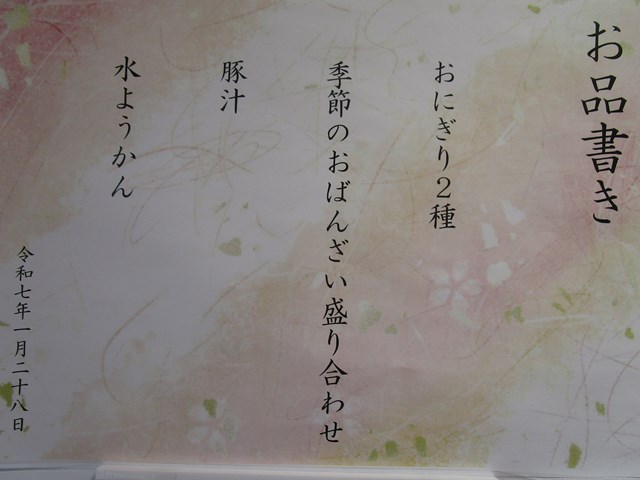 お品書き
おにぎり2種
季節のおばんざい盛り合わせ
豚汁
水ようかん
令和七年一月二十八日